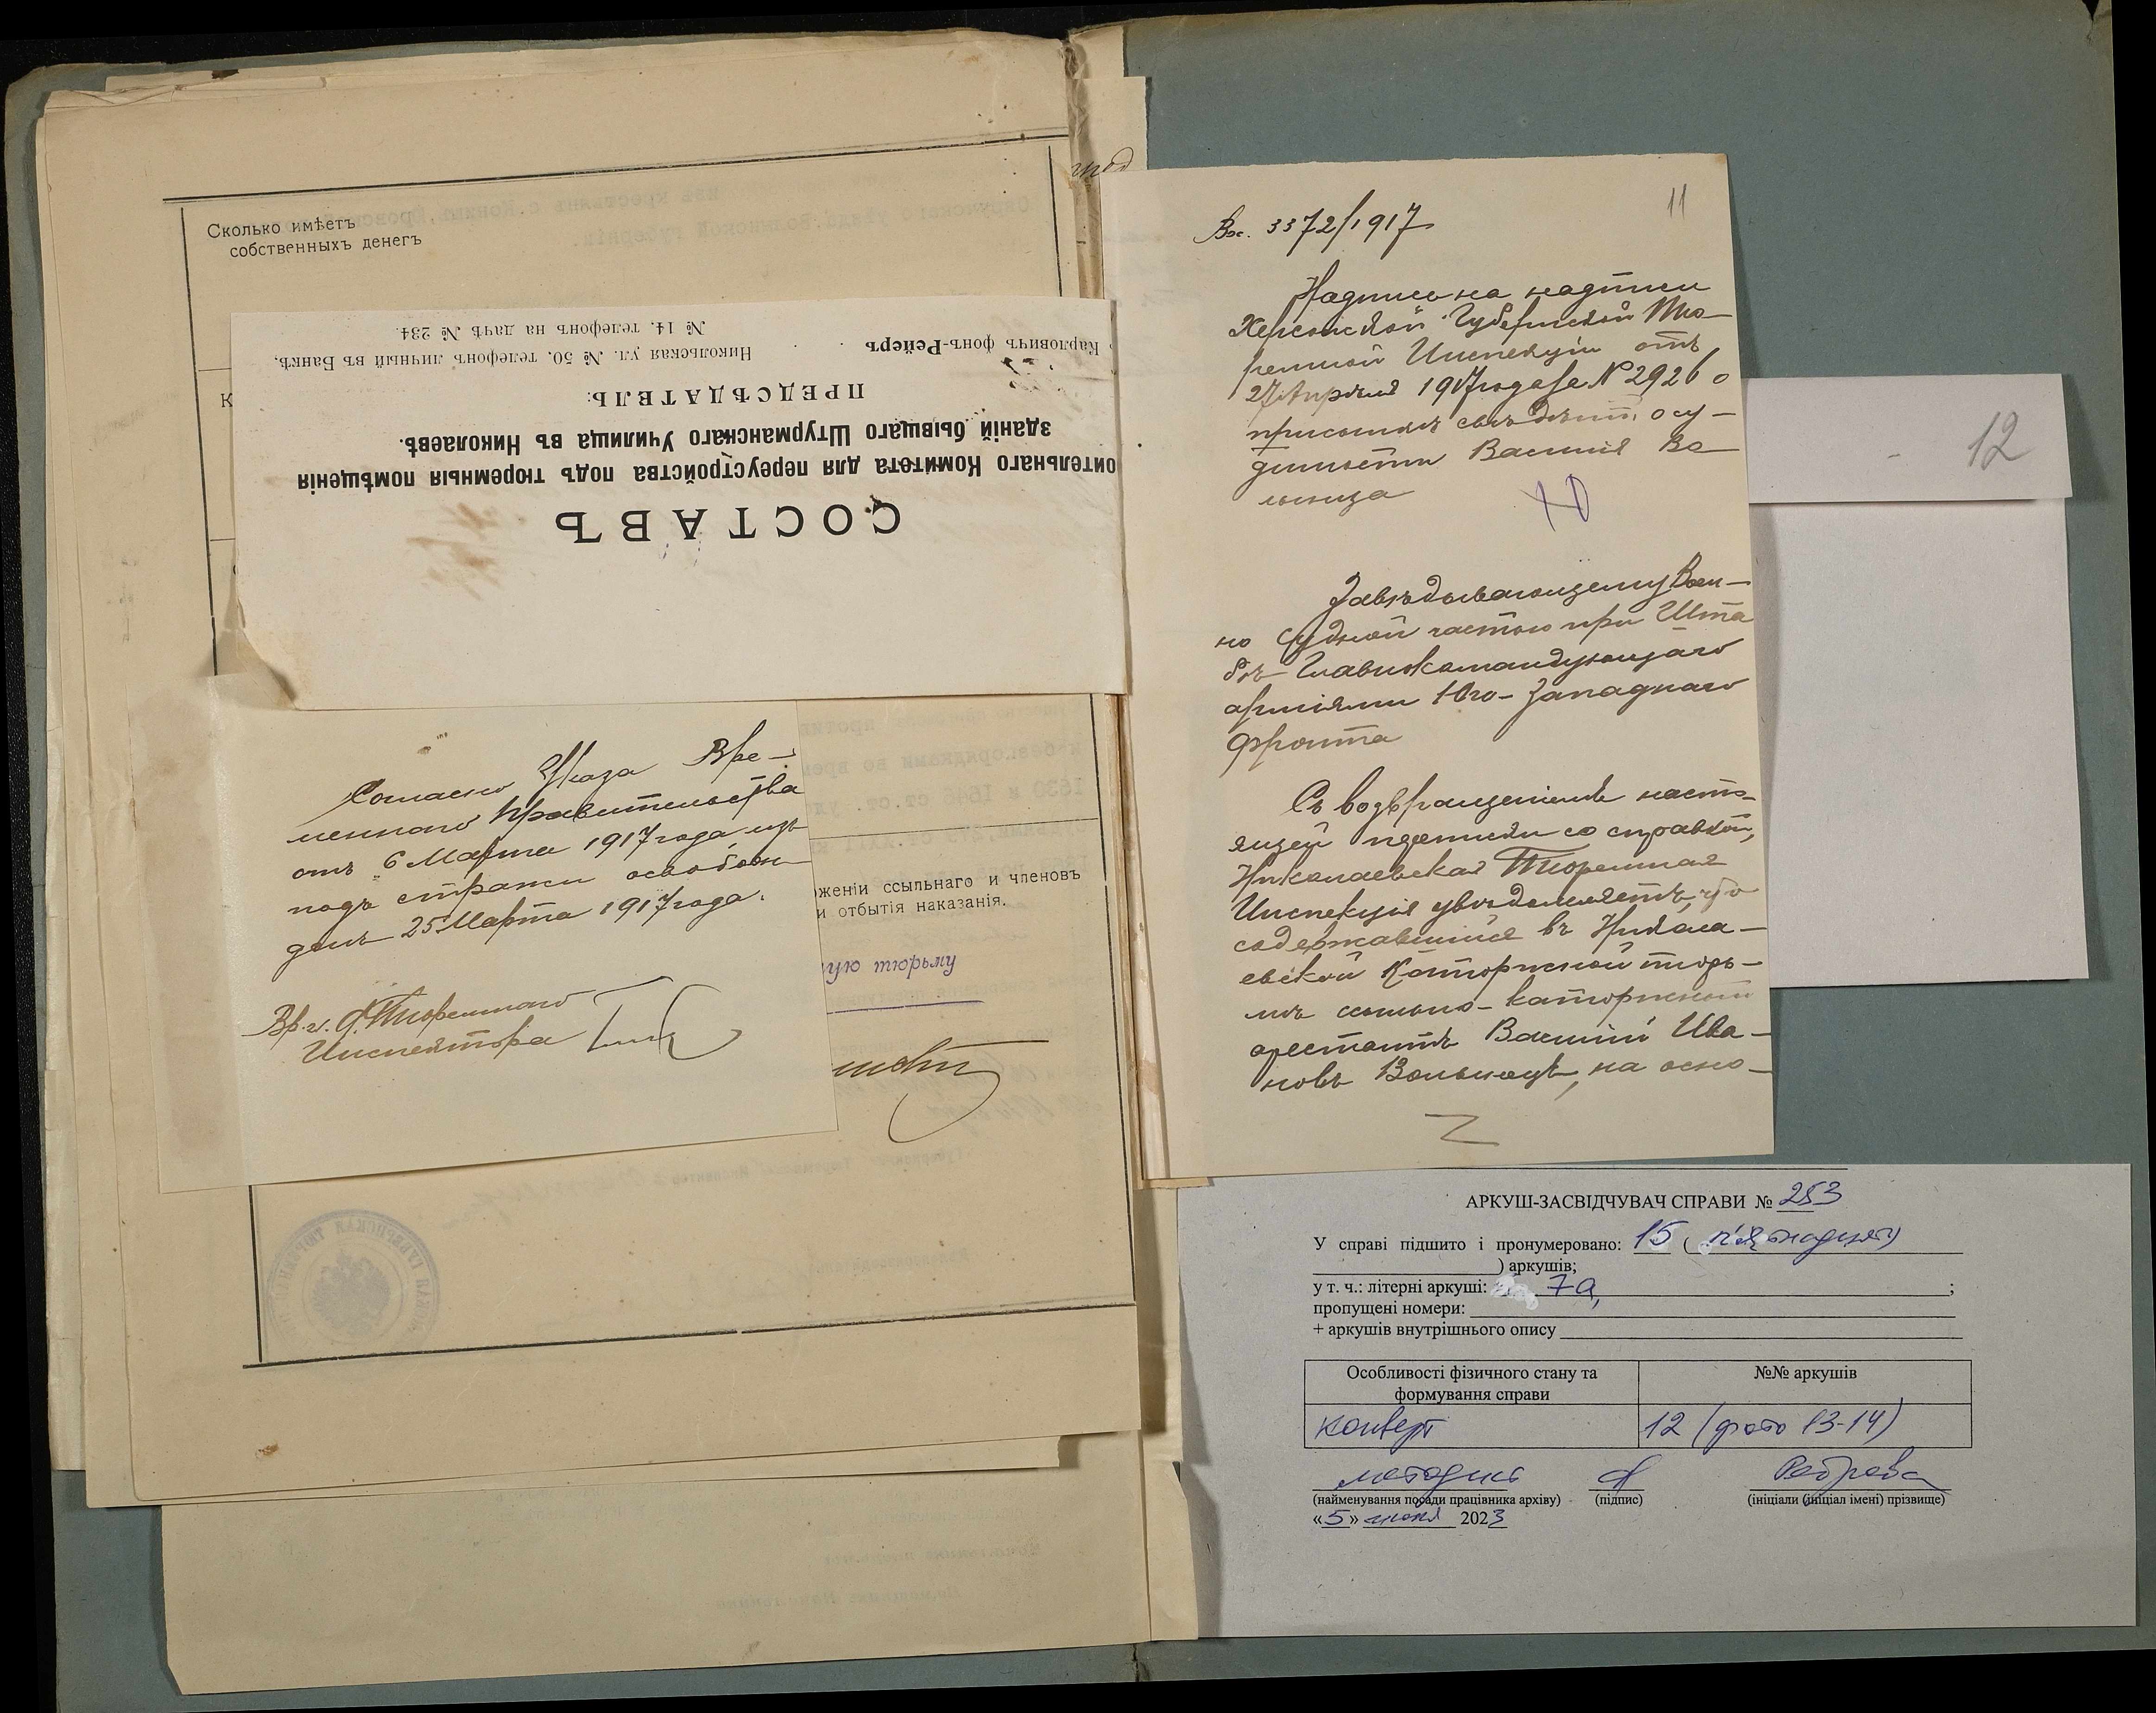 Сколько имѣетъ
собственныхъ денегъ
К
Карловичъ фонъ-Рейеръ . . Никольская ул. № 50, телефонъ личный въ Банкѣ,
№ 14, телефонъ на дачѣ № 234.
ПРЕДСѢДАТЕЛЬ:
зданій бывшаго Штурманскаго Училища въ Николаевѣ.
оительнаго Комитета для переустройства подъ тюремныя помѣщенія
СОСТАВЪ
Согласно Указа Вре-
меннаго Правительства
отъ 6 Марта 1917 года изъ
подъ стражи освобож-
денъ 25 Марта 1917 года.
Вр. и. д. Тюремнаго
Инспектора
женіи ссыльнаго и членовъ
и отбытія наказанія.
ную тюрьму
11
Вх. 3372/1917
Надпись на надписи
Херсонской Губернской Тю-
ремной Инспекціи отъ
27 Апрѣля 1917 года за № 2926 о
присылкѣ свѣдѣній о су-
димости Василія Во-
лынца
Завѣдывающему Воен-
но Судной частью при Шта
бѣ Главнокомандующаго
арміями Юго-Западнаго
Фронта
Съ возвращеніемъ насто-
ящей переписки со справкой,
Николаевская Тюремная
Инспекція увѣдомляетъ, что
содержавшійся въ Никола-
евской Каторжной тюрь-
мѣ ссыльно-каторжный
арестантъ Василій Ива-
новъ Волынецъ, на осно-
12
АРКУШ-ЗАСВІДЧУВАЧ СПРАВИ № 253
У справі підшито і пронумеровано: 15 (п'ятнадцять
) аркушів;
у т. ч.: літерні аркуші: 7а, ;
пропущені номери:
+ аркушів внутрішнього опису
Особливості фізичного стану та формування справи
№№ аркушів
конверт
12 (фото 13-14)
методист
Реброва
(найменування посади працівника архіву) (підпис) (ініціали (ініціал імені) прізвище)
«5» 2023